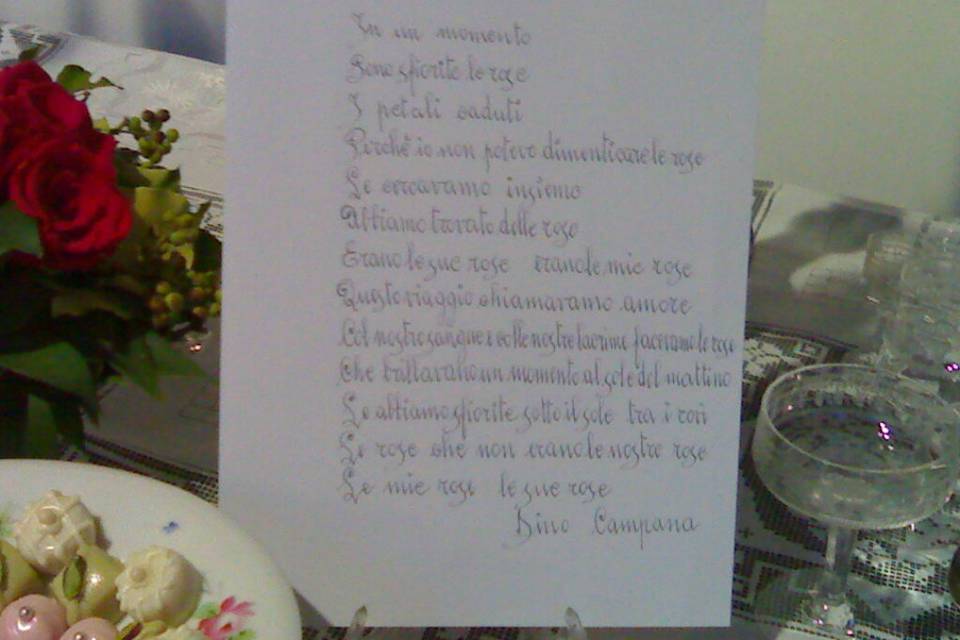 In un momento
Sono sfiorite le rose
I petali caduti
Perchè io non potevo dimenticare le rose
Le cercavamo insieme
Abbiamo trovato delle rose
Erano le sue rose erano le mie rose
Questo viaggio chiamavamo amore
Col nostro sangue e colle nostre lacrime facevamo le rose
Che brillavano un momento al sole del mattino
Le abbiamo sfiorite sotto il sole tra i rovi
Le rose che non erano le nostre rose
Le mie rose le sue rose
Dino Campana